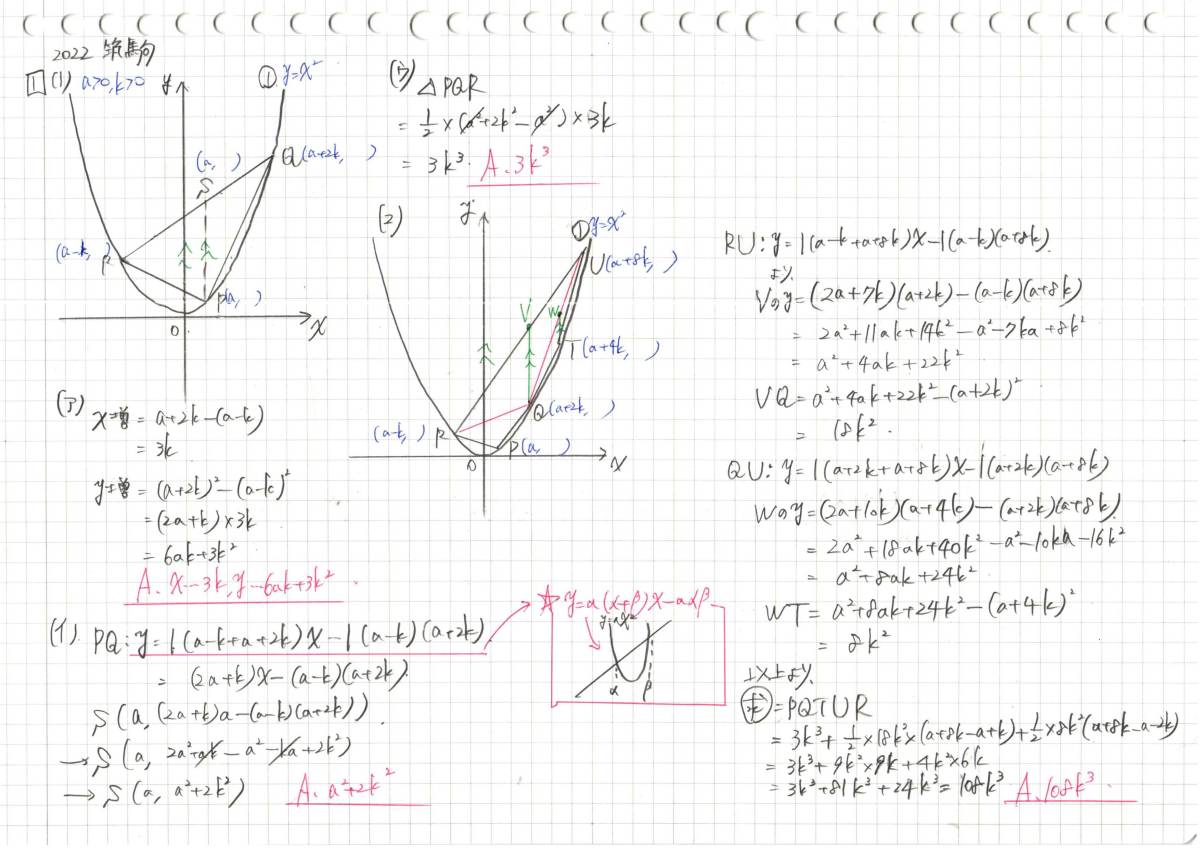 2022 筑駒
1 (1) a>0, k>0
y
① y=x²
Q(a+2k, )
(a, )
S
(a-k, )
R
P(a, )
O
x
(ア) xの増 = a+2k-(a-k)
= 3k
yの増 = (a+2k)²-(a-k)²
= (2a+k)×3k
= 6ak+3k²
A. x…3k, y…6ak+3k²
(イ) PQ: y=1(a-k+a+2k)x-1(a-k)(a+2k)
= (2a+k)x-(a-k)(a+2k)
S(a, (2a+k)a-(a-k)(a+2k))
→ S(a, 2a²+ak-a²-ka+2k²)
→ S(a, a²+2k²) A. a²+2k²
(ウ) △PQR
= 1/2×(a²+2k²-a²)×3k
= 3k³. A. 3k³
(2)
y
① y=x²
U(a+8k, )
V
W
T(a+4k, )
Q(a+2k, )
(a-k, ) R
P(a, )
O
x
☆ y=a(α+β)x-aαβ
y=ax²
α β
RU: y=1(a-k+a+8k)x-1(a-k)(a+8k)
より、
Vのy=(2a+7k)(a+2k)-(a-k)(a+8k)
= 2a²+11ak+14k²-a²-7ka+8k²
= a²+4ak+22k²
VQ= a²+4ak+22k²-(a+2k)²
= 18k².
QU: y=1(a+2k+a+8k)x-1(a+2k)(a+8k)
Wのy=(2a+10k)(a+4k)-(a+2k)(a+8k)
= 2a²+18ak+40k²-a²-10ka-16k²
= a²+8ak+24k²
WT= a²+8ak+24k²-(a+4k)²
= 8k²
以上より、
求=PQTUR
= 3k³+1/2×18k²×(a+8k-a+k)+1/2×8k²(a+8k-a-2k)
= 3k³+9k²×9k+4k²×6k
= 3k³+81k³+24k³=108k³ A. 108k³.